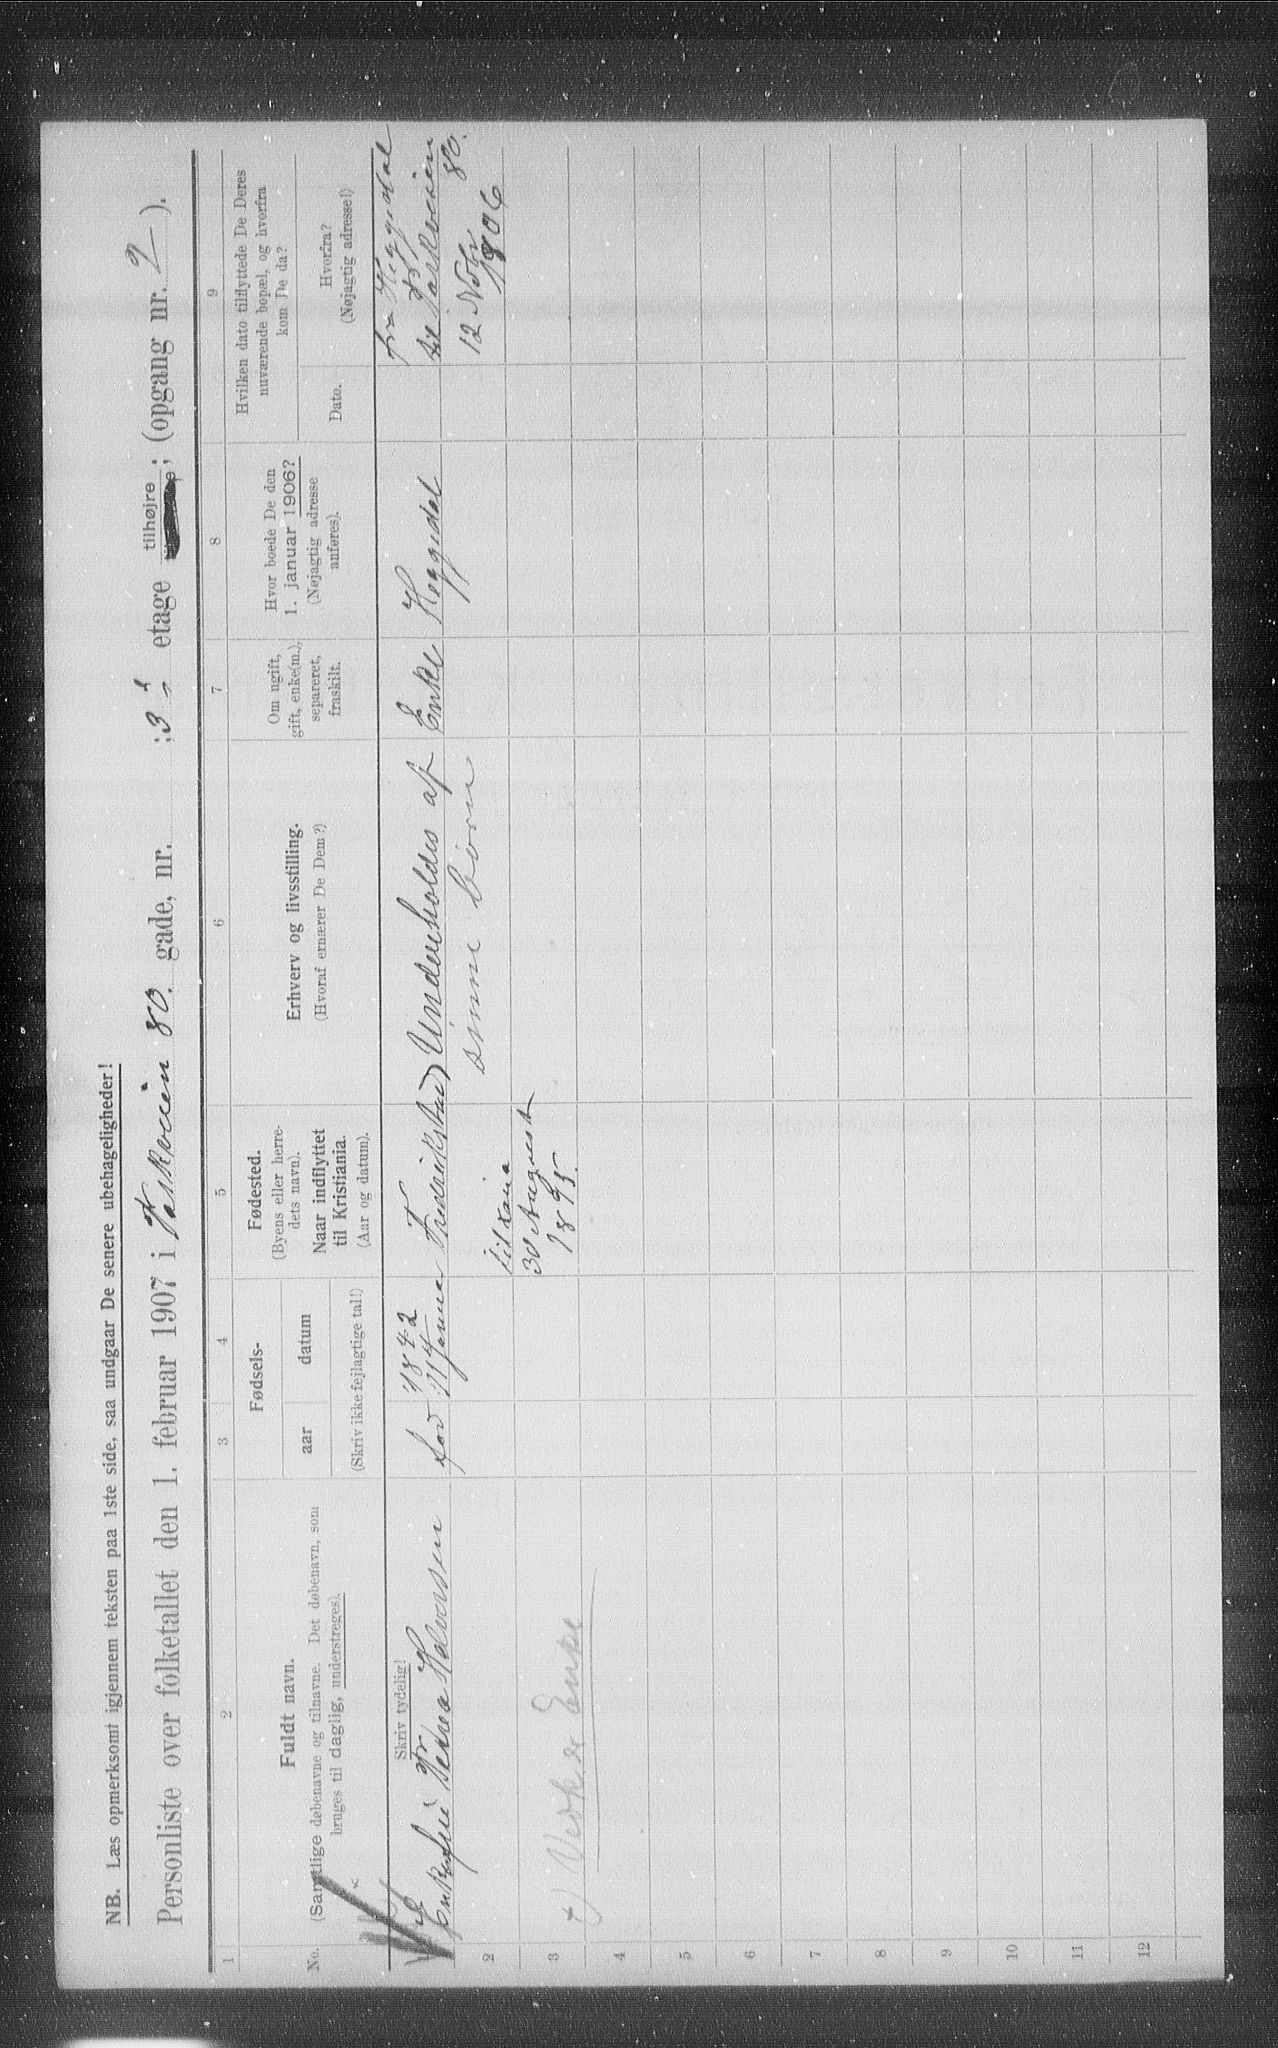 NB. Læs opmerksomt igjennem teksten paa 1ste side, saa undgaar De senere ubehageligheder!
Personliste over folketallet den 1. februar 1907 i Parkveien 80. gade, nr. ; 3 etage tilhøjre; (opgang nr. 2 ).
1 2 3 4 5 6 7 8 9
No.
Fuldt navn.
(Samtlige døbenavne og tilnavne. Det døbenavn, som
bruges til daglig, understreges).
Skriv tydelig!
Fødsels-
aar datum
(Skriv ikke fejlagtige tal!)
Fødested.
(Byens eller herre-
dets navn).
Naar indflyttet
til Kristiania.
(Aar og datum).
Erhverv og livsstilling.
(Hvoraf ernærer De Dem?)
Om ugift,
gift, enke(m.),
separeret,
fraskilt.
Hvor boede De den
1. januar 1906?
(Nøjagtig adresse
anføres).
Hvilken dato tilflyttede De Deres
nuværende bopæl, og hvorfra
kom De da?
Dato.
Hvorfra?
(Nøjagtig adresse!)
Enkefru Halvorsen
fød 1842
Januar
Fredrikstad
til Xania
30 August
1895
Underholdes af
sinne børn
Enke
Heggedal
fra Heggedal
til Parkveien
80.
12 Novbr
1906
2
3
x) Enke
4
5
6
7
8
9
10
11
12